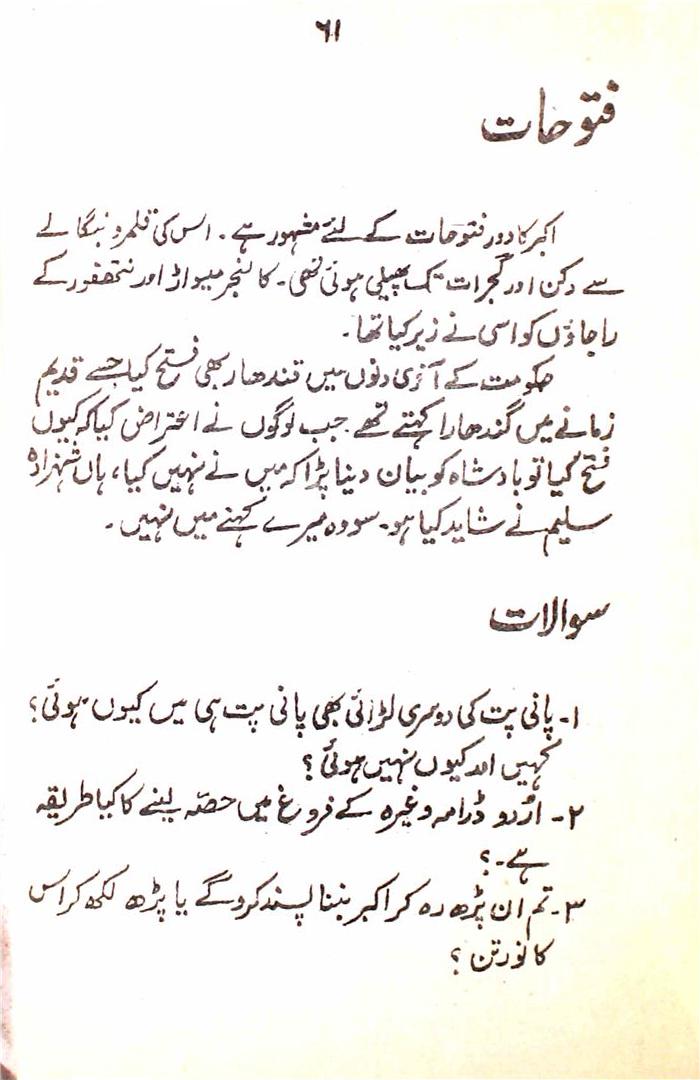 ۶۱
فتوحات
اکبر کا دور فتوحات کے لئے مشہور ہے۔ اس کی قلمرو بنگالے
سے دکن اور گجرات تک پھیلی ہوئی تھی۔ کالنجر میواڑ اور رنتھنبور کے
راجاؤں کو اسی نے زیر کیا تھا۔
حکومت کے آخری دنوں میں قندھار بھی فتح کیا جسے قدیم
زمانے میں گندھارا کہتے تھے جب لوگوں نے اعتراض کیا کہ کیوں
فتح کیا تو بادشاہ کو بیان دینا پڑا کہ میں نے نہیں کیا، ہاں شہزادہ
سلیم نے شاید کیا ہو۔ سو وہ میرے کہنے میں نہیں۔
سوالات
۱۔ پانی پت کی دوسری لڑائی بھی پانی پت ہی میں کیوں ہوئی؟
کہیں اور کیوں نہیں ہوئی؟
۲۔ اردو ڈرامہ وغیرہ کے فروغ میں حصّہ لینے کا کیا طریقہ
ہے۔؟
۳۔ تم ان پڑھ رہ کر اکبر بننا پسند کرو گے یا پڑھ لکھ کر اس
کا نورتن؟